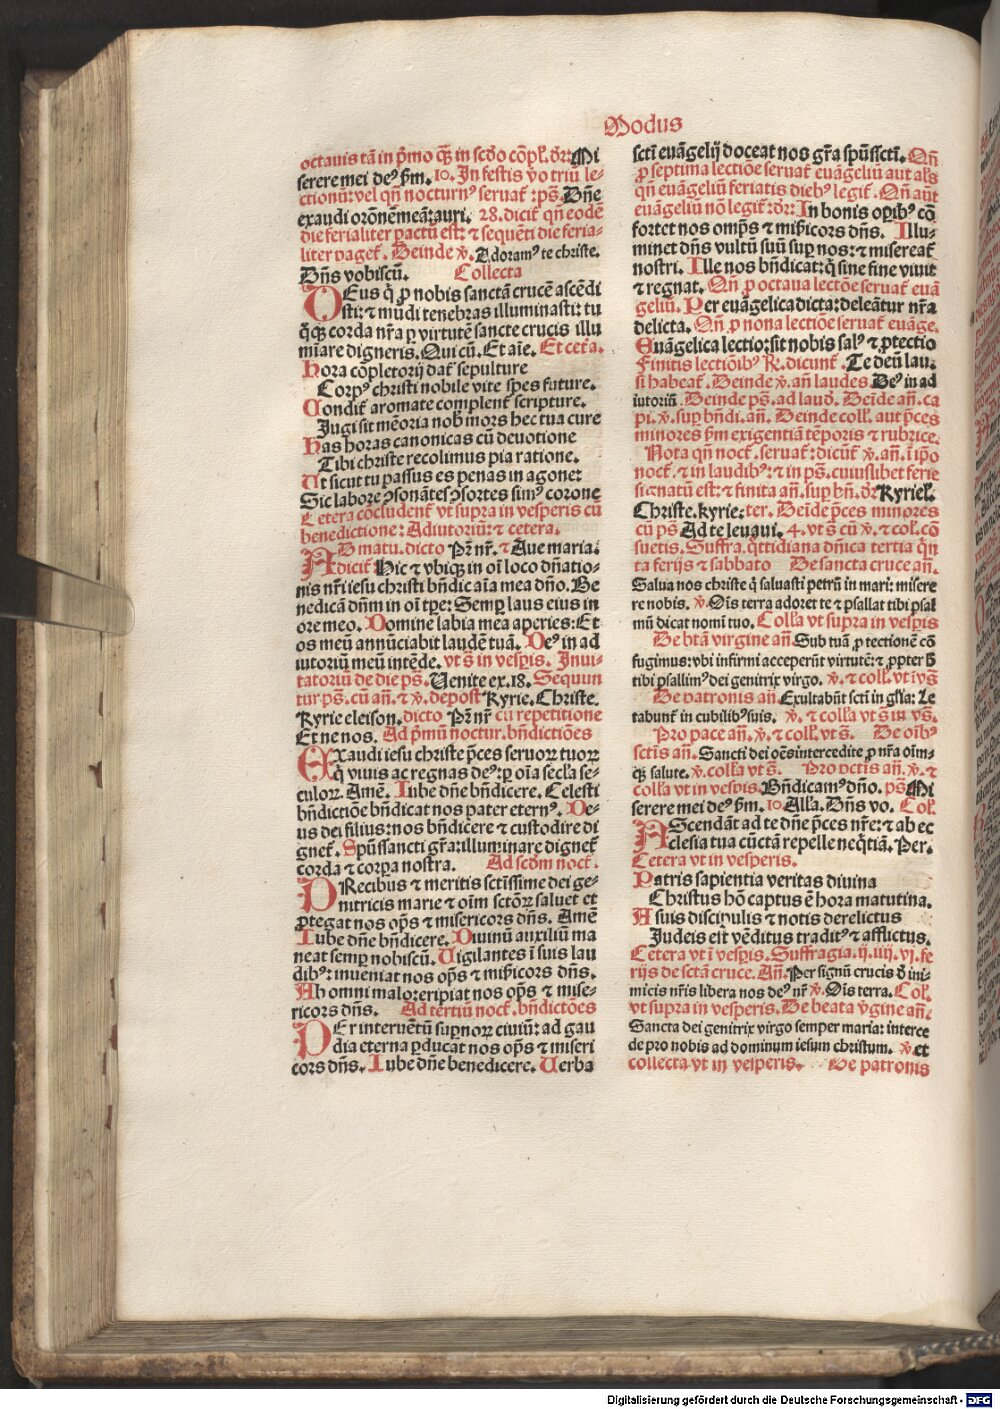 Modus
octauis tā in p̄mo qƷ in scd̄o cōpl. dr̄: Mi
serere mei deꝰ p̄m. 10. In festis v̄o triū le⸗
ctionū: vel qn̄ nocturnꝰ seruat᷑: ps̄. Dn̄e
exaudi orōnē meā: auri. 28. dicit᷑ qn̄ eodē
die ferialiter pactū est: ⁊ sequēti die feria⸗
liter paget᷑. Deinde v̄. Adoramꝰ te christe.
Dn̄s vobiscū. Collecta
DEus q̇ ꝓ nobis sanctā crucē ascēdi
sti: ⁊ mūdi tenebras illuminasti: tu
q̄sƷ corda nr̄a ꝑ virtutē sancte crucis illu
mīare digneris. Qui cū. Et aīe. Et cet᷑a.
Hora cōpletorij dat᷑ sepulture
Corpꝰ christi nobile vite spes future.
Condit᷑ aromate complent᷑ scripture.
Jugi sit mēoria nob̄ mors hec tua cure
Has horas canonicas cū deuotione
Tibi christe recolimus pia ratione.
Ut sicut tu passus es penas in agone:
Sic labore ꝯsonātes ꝯsortes simꝰ corone
Cetera cōcludent᷑ vt supra in vesperis cū
benedictione: Adiutoriū: ⁊ cetera.
AD matu. dicto Pr̄ nr̄. ⁊ Aue maria.
dicit᷑ Hic ⁊ vbiqƷ in oī loco dn̄atio⸗
nis nr̄i iesu christi bn̄dic aīa mea dn̄o. Be
nedicā dn̄m in oī tp̄e: Semꝑ laus eius in
ore meo. Domine labia mea aperies: Et
os meū annūciabit laudē tuā. Deꝰ in ad
iutoriū meū intēde. vt s̄ in vesꝑis. Inui⸗
tatoriū de die ps̄. Uenite ex. 18. Sequun
tur ps̄. cū an̄. ⁊ v̄. depost Kyrie. Christe.
Kyrie eleison. dicto Pr̄ nr̄ cū repetitione
Et ne nos. Ad p̄mū noctur. bn̄dictiōes
EXaudi iesu christe p̄ces seruoꝝ tuoꝝ
q̇ viuis ac regnas deꝰ: ꝑ oīa secl̄a se⸗
culoꝝ. Amē. Iube dn̄e bn̄dicere. Celesti
bn̄dictiōe bn̄dicat nos pater eternꝰ. De⸗
us dei filius: nos bn̄dicere ⁊ custodire di
gnet᷑. Spūssancti gr̄a: illuminare dignet᷑
corda ⁊ corꝑa nostra. Ad scdm noct᷑.
PRecibus ⁊ meritis sctīssime dei ge⸗
nitricis marie ⁊ oīm sctōꝝ saluet et
ꝓtegat nos op̄s ⁊ misericors dn̄s. Amē
Iube dn̄e bn̄dicere. Diuinū auxiliū ma
neat semꝑ nobiscū. Uigilantes ī suis lau
dibꝰ: inueniat nos op̄s ⁊ mīsericors dn̄s.
Ab omni malo: eripiat nos op̄s ⁊ mise⸗
ricors dn̄s. Ad tertiū noct᷑. bn̄dictōes
PEr interuētū suꝑnoꝝ ciuiū: ad gau
dia eterna ꝑducat nos op̄s ⁊ miseri
cors dn̄s. Iube dn̄e benedicere. Uerba
scti̅ euāgelij doceat nos gr̄a spūsscti̅. Qn̄
ꝓ septima lectiōe seruat᷑ euāgeliū aut als̄
qn̄ euāgeliū feriatis diebꝰ legit᷑. Qn̄ aūt
euāgeliū nō legit᷑: dr̄: In bonis oꝑibꝰ cō
fortet nos omp̄s ⁊ mīsericors dn̄s. Illu⸗
minet dn̄s vultū suū suꝑ nos: ⁊ misereat᷑
nostri. Ille nos bn̄dicat: q̇ sine fine viuit
⁊ regnat. Qn̄ ꝓ octaua lectōe seruat᷑ euā
geliū. Per euāgelica dicta: deleātur nr̄a
delicta. Qn̄ ꝓ nona lectiōe seruat᷑ euāge.
Euāgelica lectio: sit nobis salꝰ ⁊ ꝓtectio
Finitis lectiōibꝰ R̄. dicunt᷑. Te deū lau.
si habeat᷑. Deinde v̄. an̄ laudes Deꝰ in ad
iutoriū. Deinde ps̄. ad laud̄. Deīde an̄. ca
pi. v̄. suꝑ bn̄di. an̄. Deinde coll. aut p̄ces
minores p̄m exigentiā tēporis ⁊ rubrice.
Nota qn̄ noct᷑. seruat᷑: dicūt᷑ v̄. an̄. ī ip̄o
noct᷑. ⁊ in laudibꝰ: ⁊ in ps̄. cuiuslibet ferie
signatū est: ⁊ finita an̄. suꝑ bn̄. dr̄ Kyriel.
Christe. kyrie: ter. Deīde p̄ces minores
cū ps̄ Ad te leuaui. 4. vt s̄ cū v̄. ⁊ col. cō
suetis. Suffra. q̄ttidiana dn̄ica tertia q̄n
ta ferijs ⁊ sabbato De sancta cruce an̄.
Salua nos christe q̇ saluasti petrū in mari: misere
re nobis. v̄. Oīs terra adoret te ⁊ psallat tibi psal
mū dicat nomī tuo. Coll̄a vt supra in vesꝑis
De btā virgine an̄ Sub tuā ꝓtectionē cō
fugimus: vbi infirmi acceperūt virtutē: ⁊ ꝓpter B̄
tibi psallimꝰ dei genitrix virgo. v̄. ⁊ coll. vt ī vs̄
De patronis an̄. Exultabūt scti̅ in gl̄ia: Le
tabunt᷑ in cubilibꝰ suis. v̄. ⁊ coll̄a vt s̄ in vs̄.
Pro pace an̄. v̄. ⁊ coll. vt s̄. De oībꝰ
sctīs an̄. Sancti dei oēs intercedite ꝓ nr̄a oīm⸗
qƷ salute. v̄. coll̄a vt s̄. Pro pctīs an̄. v̄. ⁊
coll̄a vt in vesꝑis. Bn̄dicamꝰ dn̄o. ps̄ Mi
serere mei deꝰ p̄m. 10 All̄a. Dn̄s vo. Col.
AScendāt ad te dn̄e p̄ces nr̄e: ⁊ ab ec
clesia tua cūctā repelle neq̇tiā. Per.
Cetera vt in vesperis.
Patris sapientia veritas diuina
Christus hō captus ē hora matutina.
A suis discipulis ⁊ notis derelictus
Judeis eit᷑ vēditus traditꝰ ⁊ afflictus.
Cetera vt ī vesꝑis. Suffragia. ij. iiij. vj. fe
rijs de sctā cruce. An̄. Per signū crucis d̄ ini⸗
micis nr̄is libera nos deꝰ nr̄ v̄. Oīs terra. Col.
vt supra in vesperis. De beata v̄gine an̄.
Sancta dei genitrix virgo semper maria: interce
de pro nobis ad dominum iesum christum. v̄ et
collecta vt in vesperis. De patronis
Digitalisierung gefördert durch die Deutsche Forschungsgemeinschaft - DFG